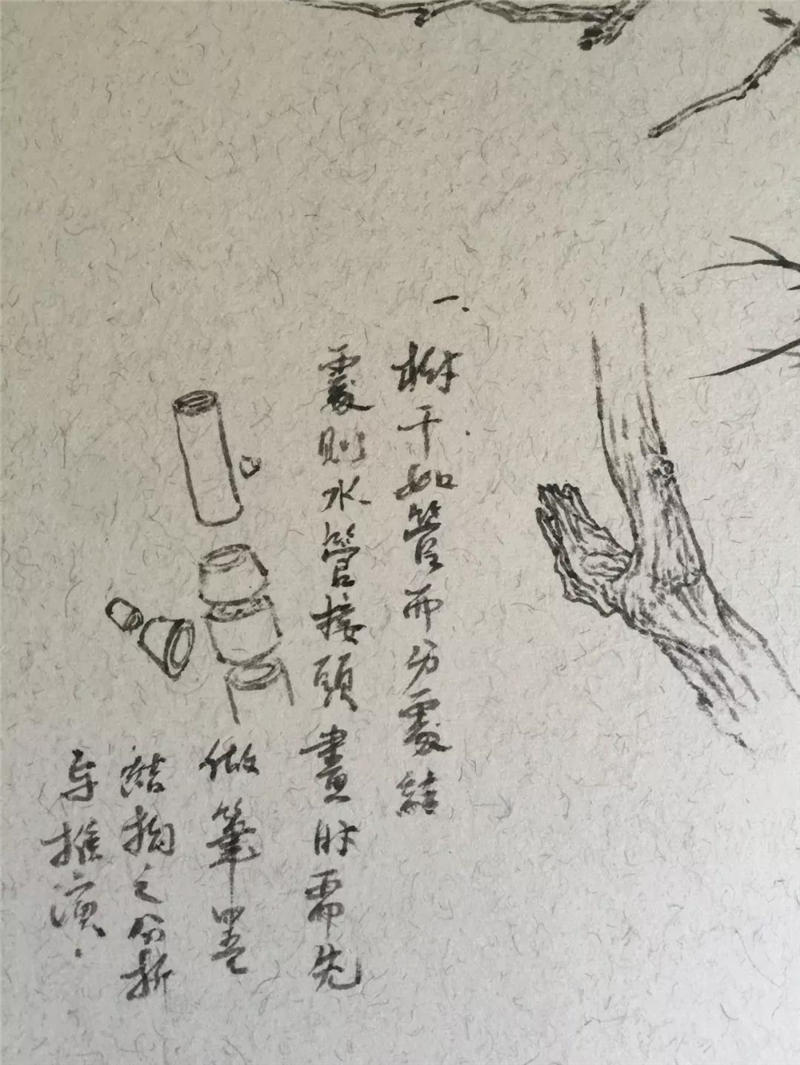 一.
树干如管而分處結
處則水管接頭畫时需先
做筆墨
結构之分析
与推演.